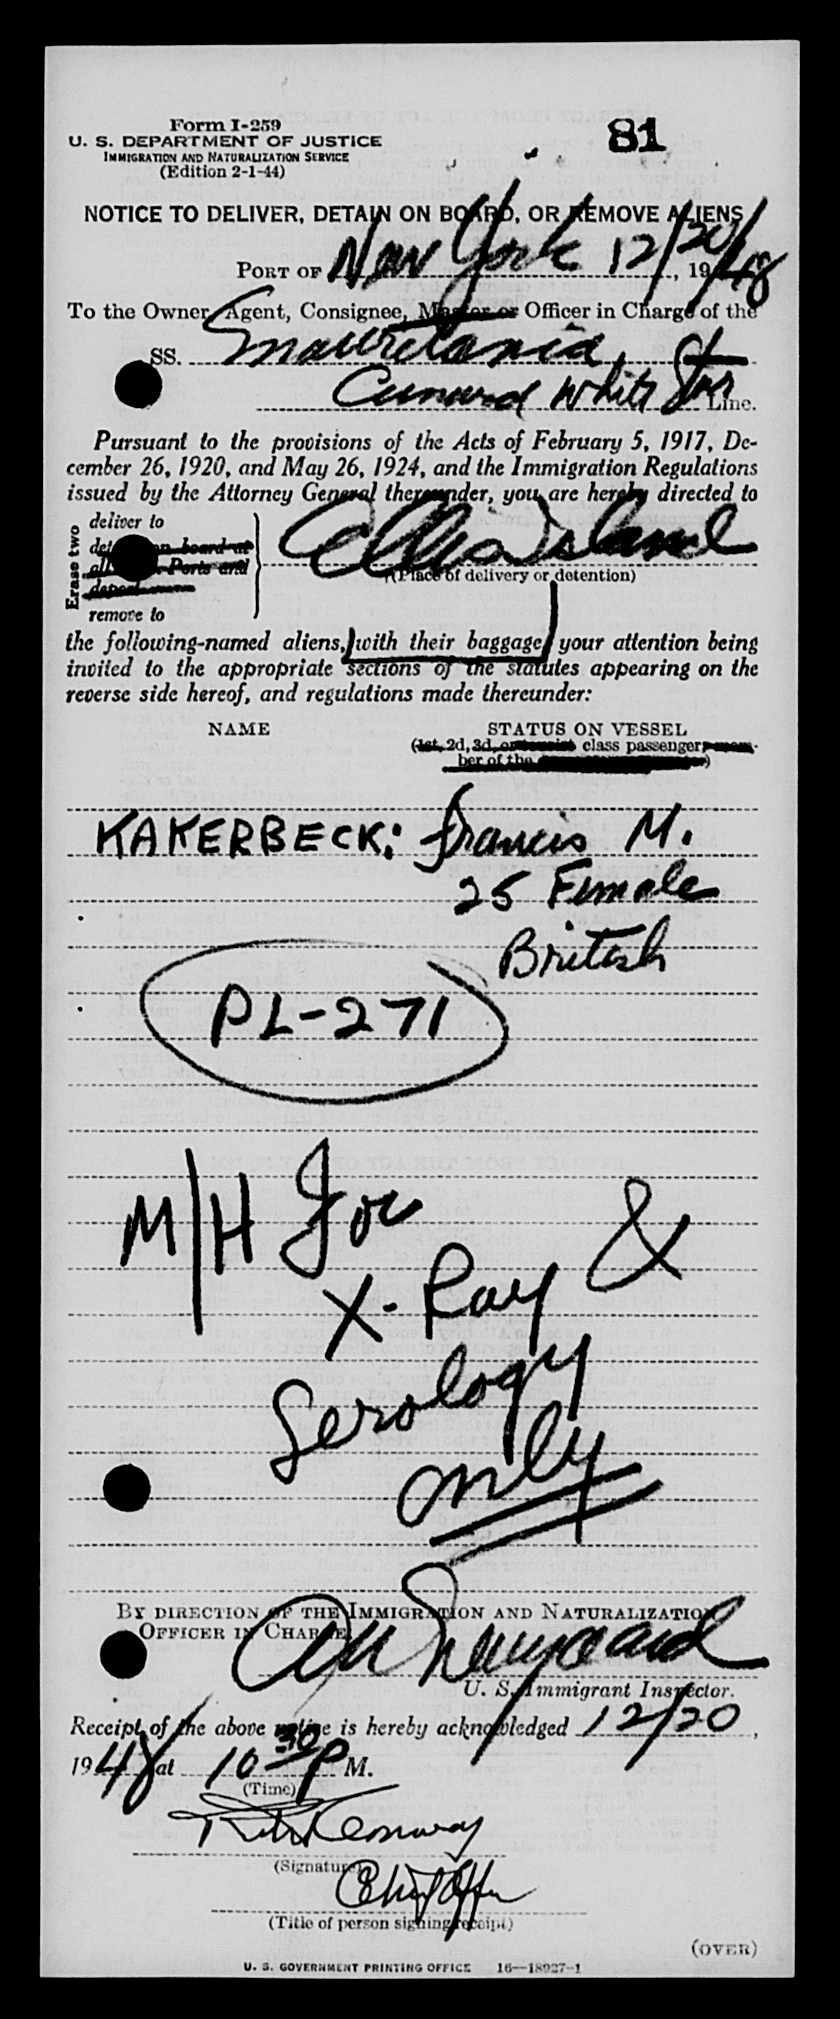 Form I-259
81
U. S. DEPARTMENT OF JUSTICE
IMMIGRATION AND NATURALIZATION SERVICE
(Edition 2-1-44)
NOTICE TO DELIVER, DETAIN ON BOARD, OR REMOVE ALIENS
PORT OF New York 12/20/, 1948
To the Owner, Agent, Consignee, Master or Officer in Charge of the
SS. Mauretania,
Cunard White Star Line.
Pursuant to the provisions of the Acts of February 5, 1917, De-
cember 26, 1920, and May 26, 1924, and the Immigration Regulations
issued by the Attorney General thereunder, you are hereby directed to
Erase two
deliver to
on board at
all Ports and
remove to
Ellis Island
(Place of delivery or detention)
the following-named aliens, with their baggage, your attention being
invited to the appropriate sections of the statutes appearing on the
reverse side hereof, and regulations made thereunder:
NAME STATUS ON VESSEL
(1st, 2d, 3d, or tourist class passenger, mem-
ber of the )
KAKERBECK: Francis M.
25 Female
British
PL-271
M/H For
X-Ray &
Serology
only
BY DIRECTION OF THE IMMIGRATION AND NATURALIZATION
OFFICER IN CHARGE
U. S. Immigrant Inspector.
Receipt of the above notice is hereby acknowledged 12/20,
1948 at 10 30 P M.
(Time)
(Signature)
Chief Offr
(Title of person signing receipt)
(OVER)
U. S. GOVERNMENT PRINTING OFFICE 16—18927-1